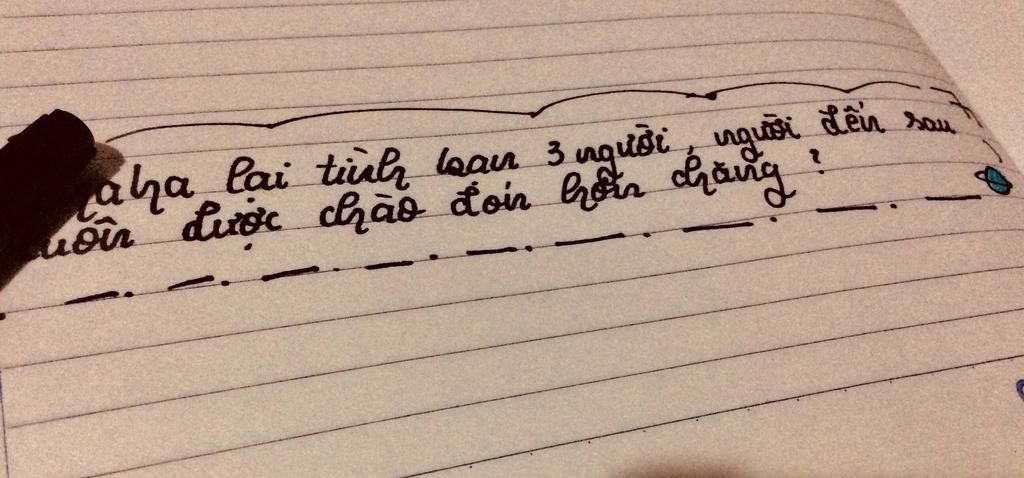 haha lại tình bạn 3 người, người đến sau
luôn được chào đón hơn chăng ?